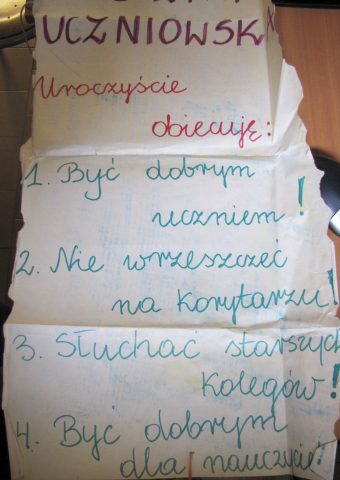 UCZNIOWSK
Uroczyście
obiecuję:
1. Być dobrym
uczniem!
2. Nie wrzeszczeć
na korytarzu!
3. Słuchać starszych
kolegów!
4. Być dobrym
dla nauczycie!